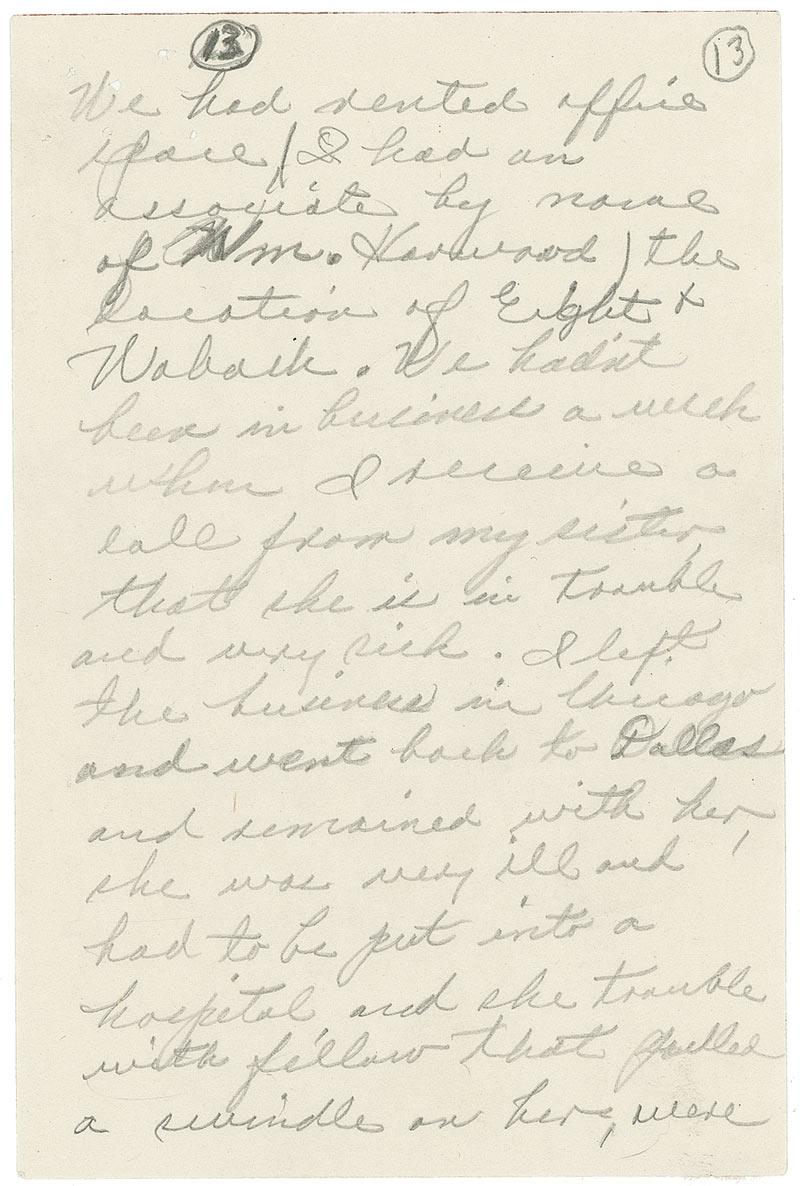 13 13
We had rented office
space, ( I had an
associate by name
of Wm. Harwood ) the
location of Eight &
Wabash. We hadn't
been in business a week
when I receive a
call from my sister,
that she is in trouble
and very sick. I left
the business in Chicago
and went back to Dallas
and remained with her,
she was very ill and
had to be put into a
hospital and she trouble
with fellow that pulled
a swindle on her, were